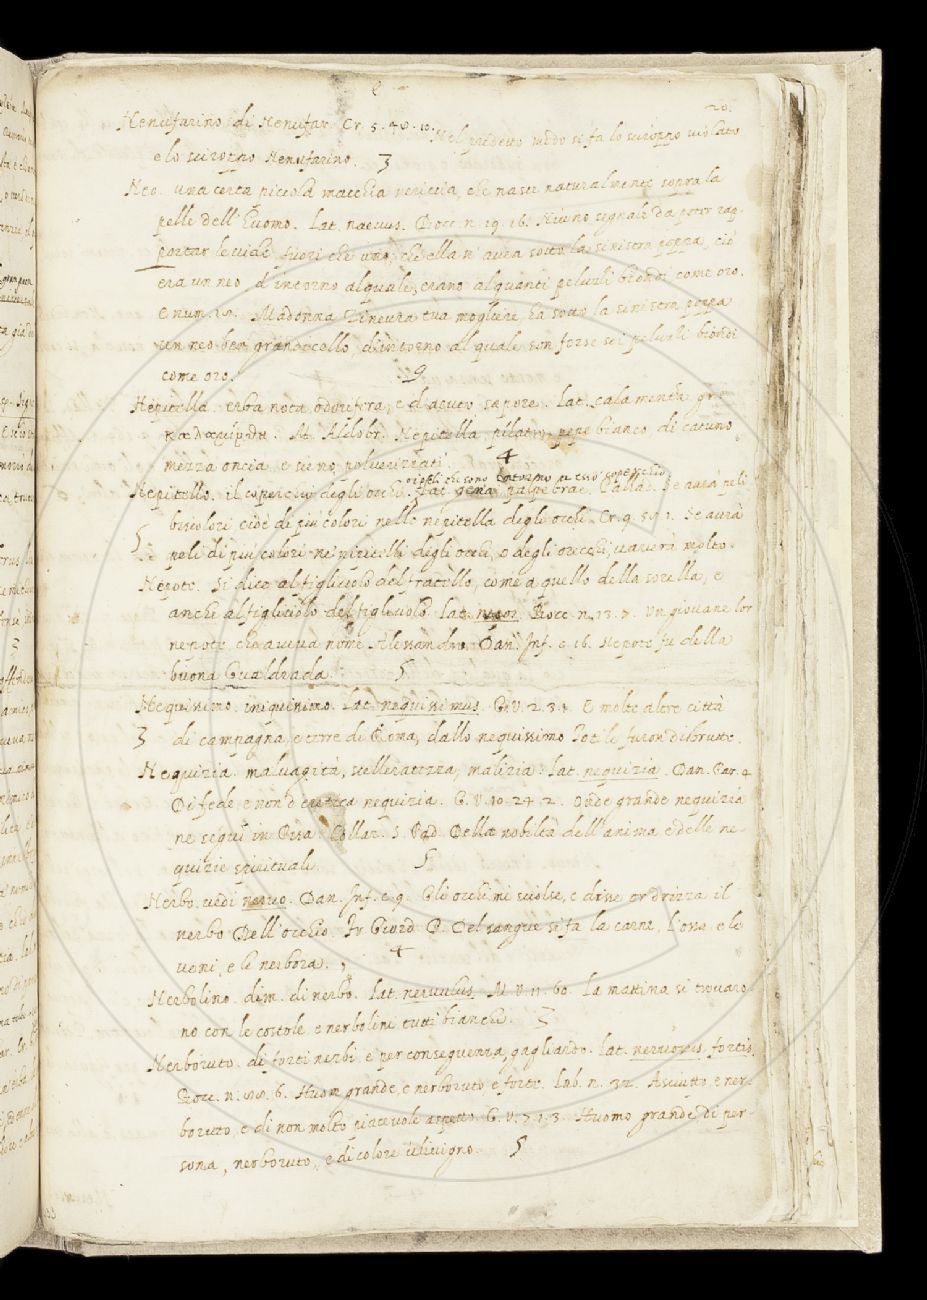 20.
Nenufarino di Nenufar Cr. 5. 40. 10. Nel predetto modo si fa lo sciroppo violato
e lo sciroppo Nenufarino. 3
Neo. una certa piccola macchia nericcia, che nasce naturalmente sopra la
pelle dell'huomo. Lat. naevus. Bocc. n. 19. 16. Niuno segnale da poter rap-
portar le vide, fuori che uno, che ella n'avea sotto la sinistra poppa, ciò
era un neo d'intorno al quale, erano alquanti peluzzi biondi come oro.
e num. Madonna Zinevra tua mogliere, ha sotto la sinistra poppa
un neo ben grandicello, dintorno al quale son forse sei peluzzi biondi
come oro. 9
Nepitella. erba nota odorifera, e d'acuto sapore. Lat. calamentha gr.
M. Aldobr. Nepitella, pilatro, pepe bianco, di catuno
mezza oncia, e sieno polverizzati. 4
Nepitello. il coperchio degli occhi. Lat. gena palpebrae. Pallad. Se avrà peli
biscolori cioè di più colori nelle nepitella degli occhi. Cr. 9. Se avrà
5 peli di più colori ne nipitelli degli occhi, o degli orecchi, vaverà molto.
Nepote. Si dice al figliuolo del fratello, come a quello della sorella, e
anche al figliuolo del figliuolo. Lat. nepos. Bocc. n. 13. 7. Un giovane lor
nepote, che aveva nome Alessandro. Dan. Inf. c. 16. Nepote fu della
buona Gualdrada. 5
Nequissimo. iniquissimo. Lat. nequissimus. G. V. 2. 3. E molte altre città
3 di campagna, e terre di Roma, dallo nequissimo Totile furon distrutte.
Nequizia. malvagità, scelleratezza, malizia. Lat. nequizia. Dan. Par. 4
Di fede, e non d'eretica nequizia. G. V. 10. 24. 2. Onde grande nequizia
ne seguì in Pisa. Collaz. S. Pad. Della nobiltà dell'anima, e delle ne-
quizie spirituali. 5
Nerbo. vedi nervo. Dan. Inf. c. 9. Gli occhi mi sciolse, e disse or drizza il
nerbo Dell'occhio. Fr. Giord. P. Del sangue si fa la carne, l'ossa e le
veni, e le nerbora. 4
Nerbolino. dim. di nerbo. Lat. nervulus. M. V. 11. 60. La mattina si trovaro-
no con le costole, e nerbolini tutti bianchi. 3
Nerboruto. di forti nerbi e per conseguenza, gagliardo. Lat. nervosus, fortis.
Bocc. n. 6. Huom grande, e nerboruto, e forte. Lab. n. 32. Asciutto, e ner-
boruto, e di non molto piacevole aspetto. G. V. 7. 1. 3. Huomo grande di per-
sona, nerboruto, e di colore ulivigno. 5